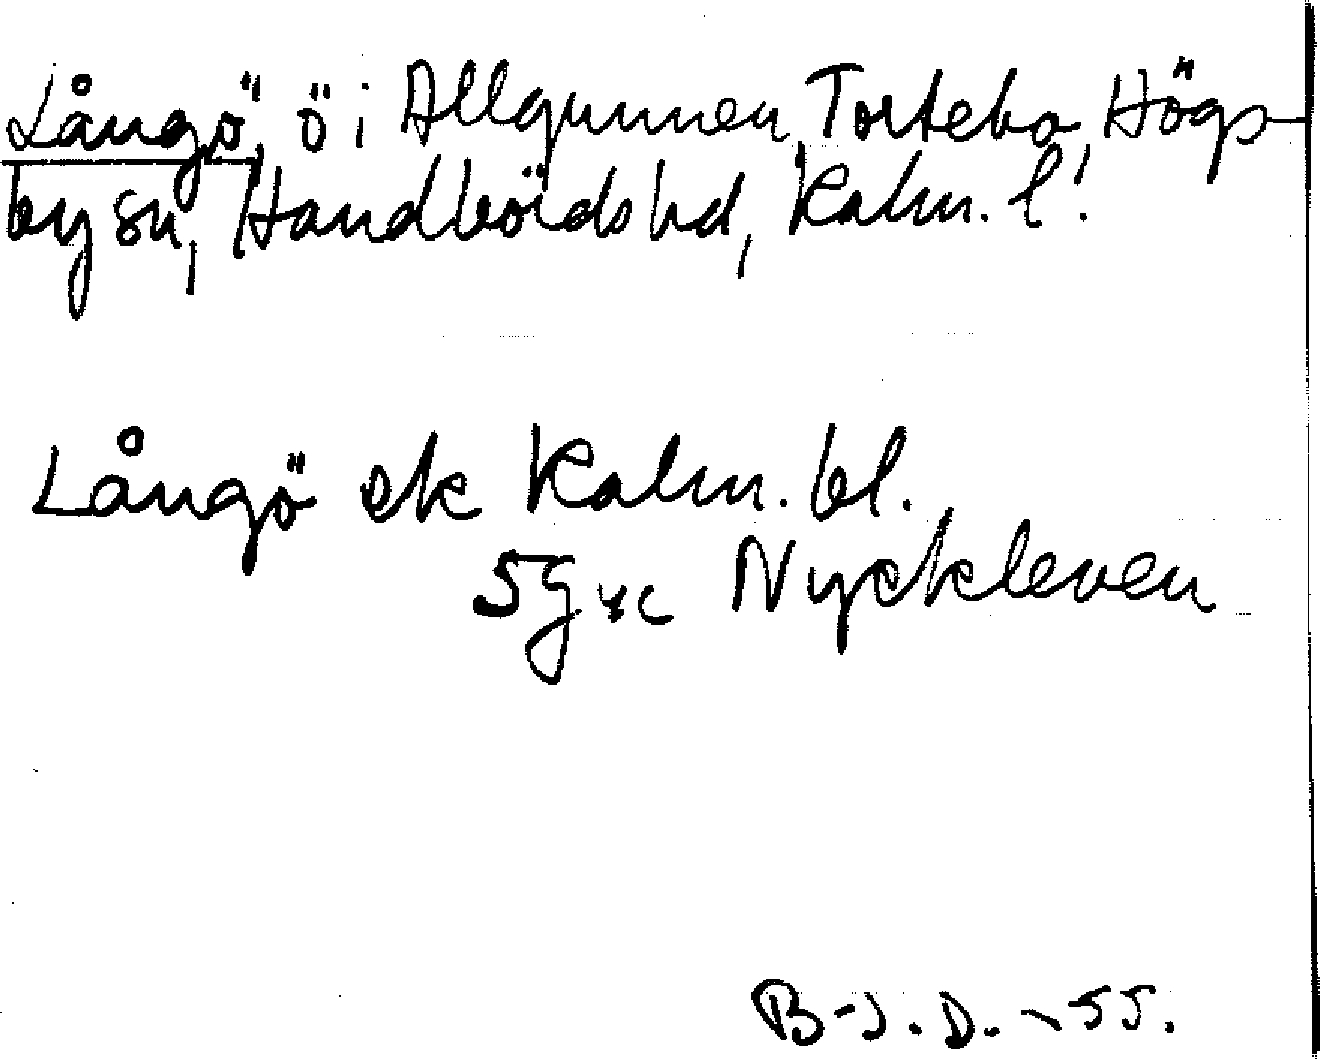 Långö, ö i Allgunnen, Torteba, Högs-
by sn, Handbörds hd, Kalm. l!
Långö ek Kalm. bl.
5g Nyckleven
B-J. D. -55.